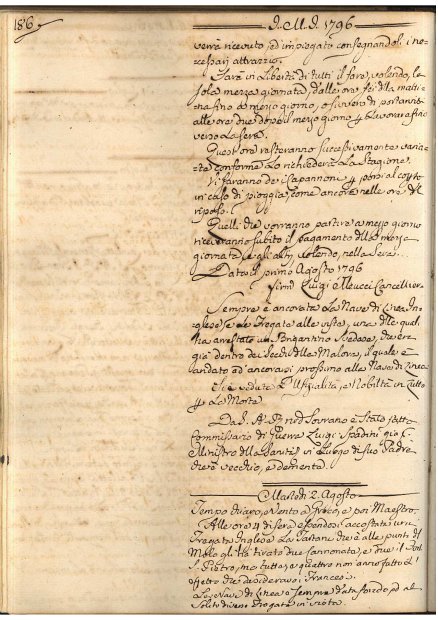 186
I. M. I. 1796
verrà ricevuto, ed impiegato consegnandoli i ne=
cessarj attrazzi.
Sarà in Libertà di tutti il fare, volendo, la
sola mezza giornata, dalle ore sei della matti=
na fino a mezzo giorno, o sivvero di portarvisi
alle ore due dopo il mezzo giorno p lavorare fino
verso la sera.
Quest'ore resteranno successivamente varia=
te conforme lo richiederà la Stagione.
Vi saranno de' Capannoni p porsi al coperto
in caso di pioggia, come ancora nelle ore del
riposo.
Quelli che vorranno partire a mezzo giorno
riceveranno subito il pagamento della mezza
giornata, e gli altri, volendo, nella sera.
Dato il primo Agosto 1796
Luigi Cancelliere
Sempre è ancorata la Nave di Linea In=
glese, e le Fregate alla vista, una delle quali
ha arrestato un Brigantino Svedese, che era
già dentro dei Secchi della Malora, il quale è
andato ad ancorarsi prossimo alla Nave di Linea
Si è veduta l'Ufizialità, e Nobiltà in lutto
p la Morte
Dal Sovrano è Stato fatto
Commissario di Guerra Luigi Spadini già
Ministro della Sanità in luogo di suo Padre
che è vecchio, e demente
Martedì 2. Agosto
Tempo vento a Greco, e poi Maestro.
Alle ore 4 di sera essendosi accostata una
Fregata Inglese la Tartana che è alle punta del
Molo gl'ha tirato due cannonate, e due il
S. Pietro, ma tutte, e quattro non anno fatto l'
effetto che desideravasi i Francesi.
La Nave di Linea è sempre
Solito Fregata in vista.